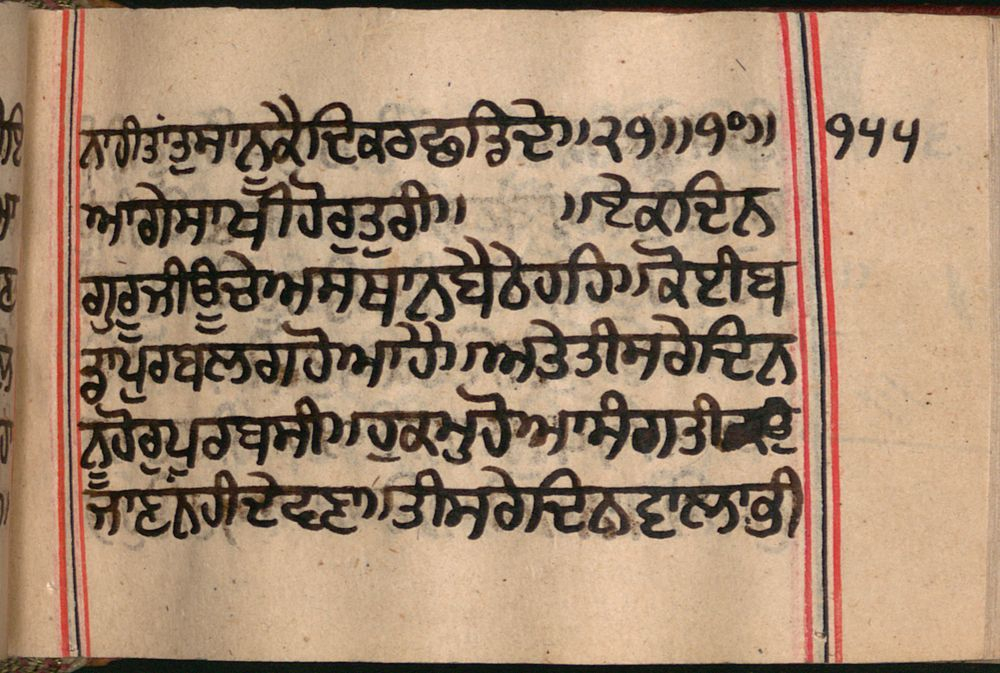 ਨਾਹੀਤਾਂਤੁਮਾਨੂਕੈਦਿਕਰਛਡਿਦੇ॥੨੧॥੧੦॥ ੧੫੫
ਆਗੇਸਾਖੀਹੋਰੁਤੁਰੀ॥ ॥ਏਕਦਿਨ
ਗੁਰੂਜੀਊਚੇਅਸਥਾਨਬੈਠੇਹਹਿ॥ਕੋਈਬ
ਡਾਪੁਰਬਲਗਹੋਆਹੈ॥ਅਤੇਤੀਸਰੇਦਿਨ
ਨੂਹੋਰੁਪੁਰਬਸੀ॥ਹੁਕਮੁਹੋਆਸੰਗਤੀ
ਜਾਣਨਹੀਦੇਵਣਾ॥ਤੀਸਰੇਦਿਨਵਾਲਾਭੀ